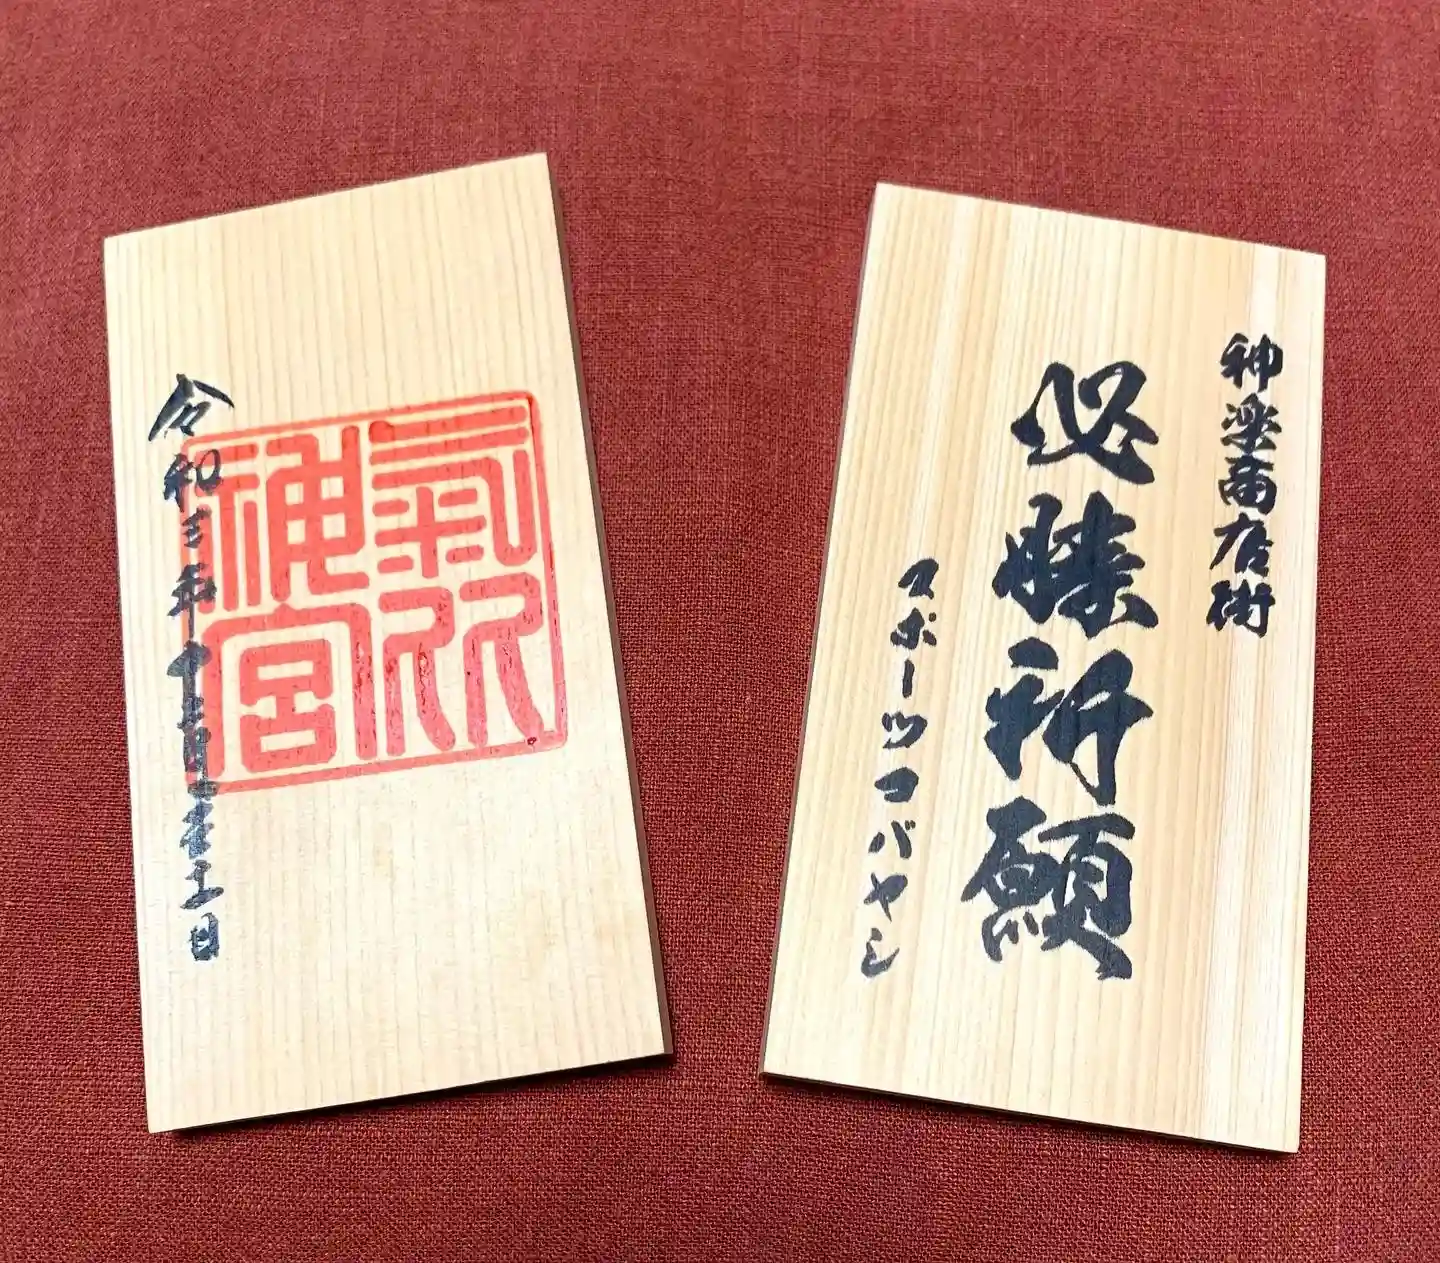 氣比
神宮
令和三年 月 日
神楽商店街
必勝祈願
スポーツコバヤシ